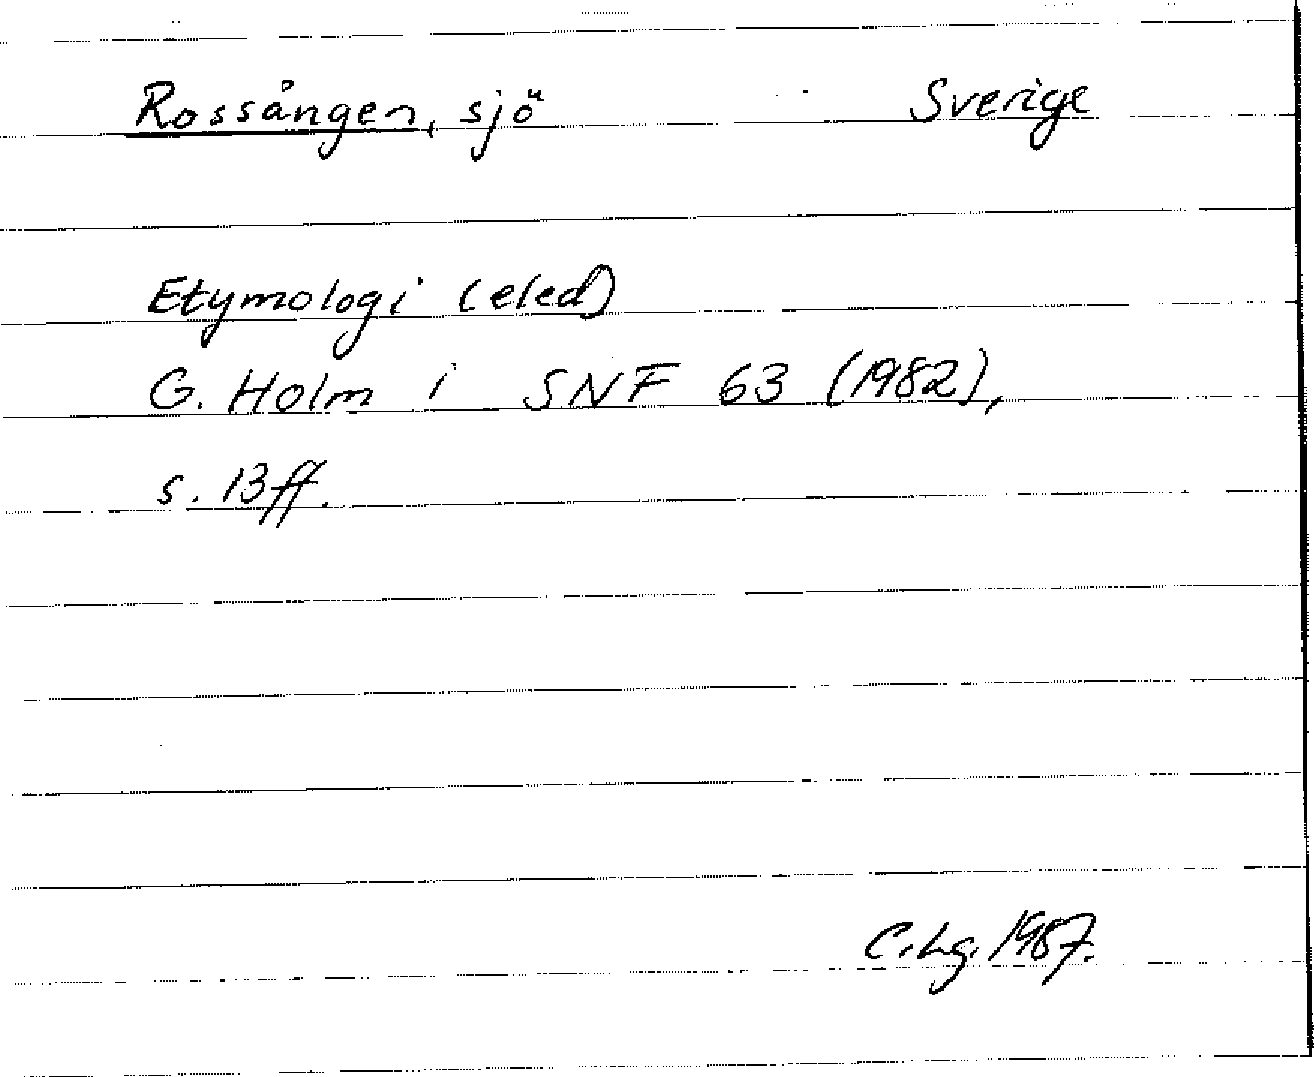 Rossången, sjö Sverige
Etymologi (eled)
G. Holm i SNF 63 (1982),
s. 13ff.
C.Lg. 1987.